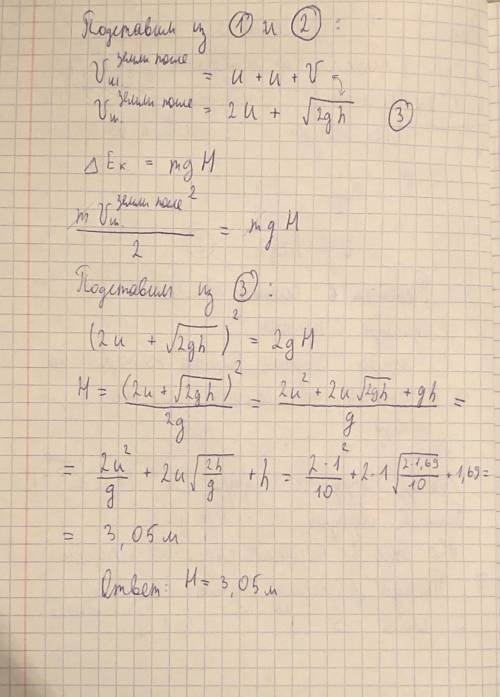 Подставим из ① и ②:
Vш^земли после = u + u + V
Vш^земли после = 2u + √(2gh) ③
ΔEк = mgH
(m Vш^земли после ²)/2 = mgH
Подставим из ③:
(2u + √(2gh))² = 2gH
H = (2u + √(2gh))²/(2g) = (2u² + 2u√(2gh) + gh)/g =
= 2u²/g + 2u√(2h/g) + h = 2·1²/10 + 2·1√(2·1,69/10) + 1,69 =
= 3,05 м
Ответ: H = 3,05 м